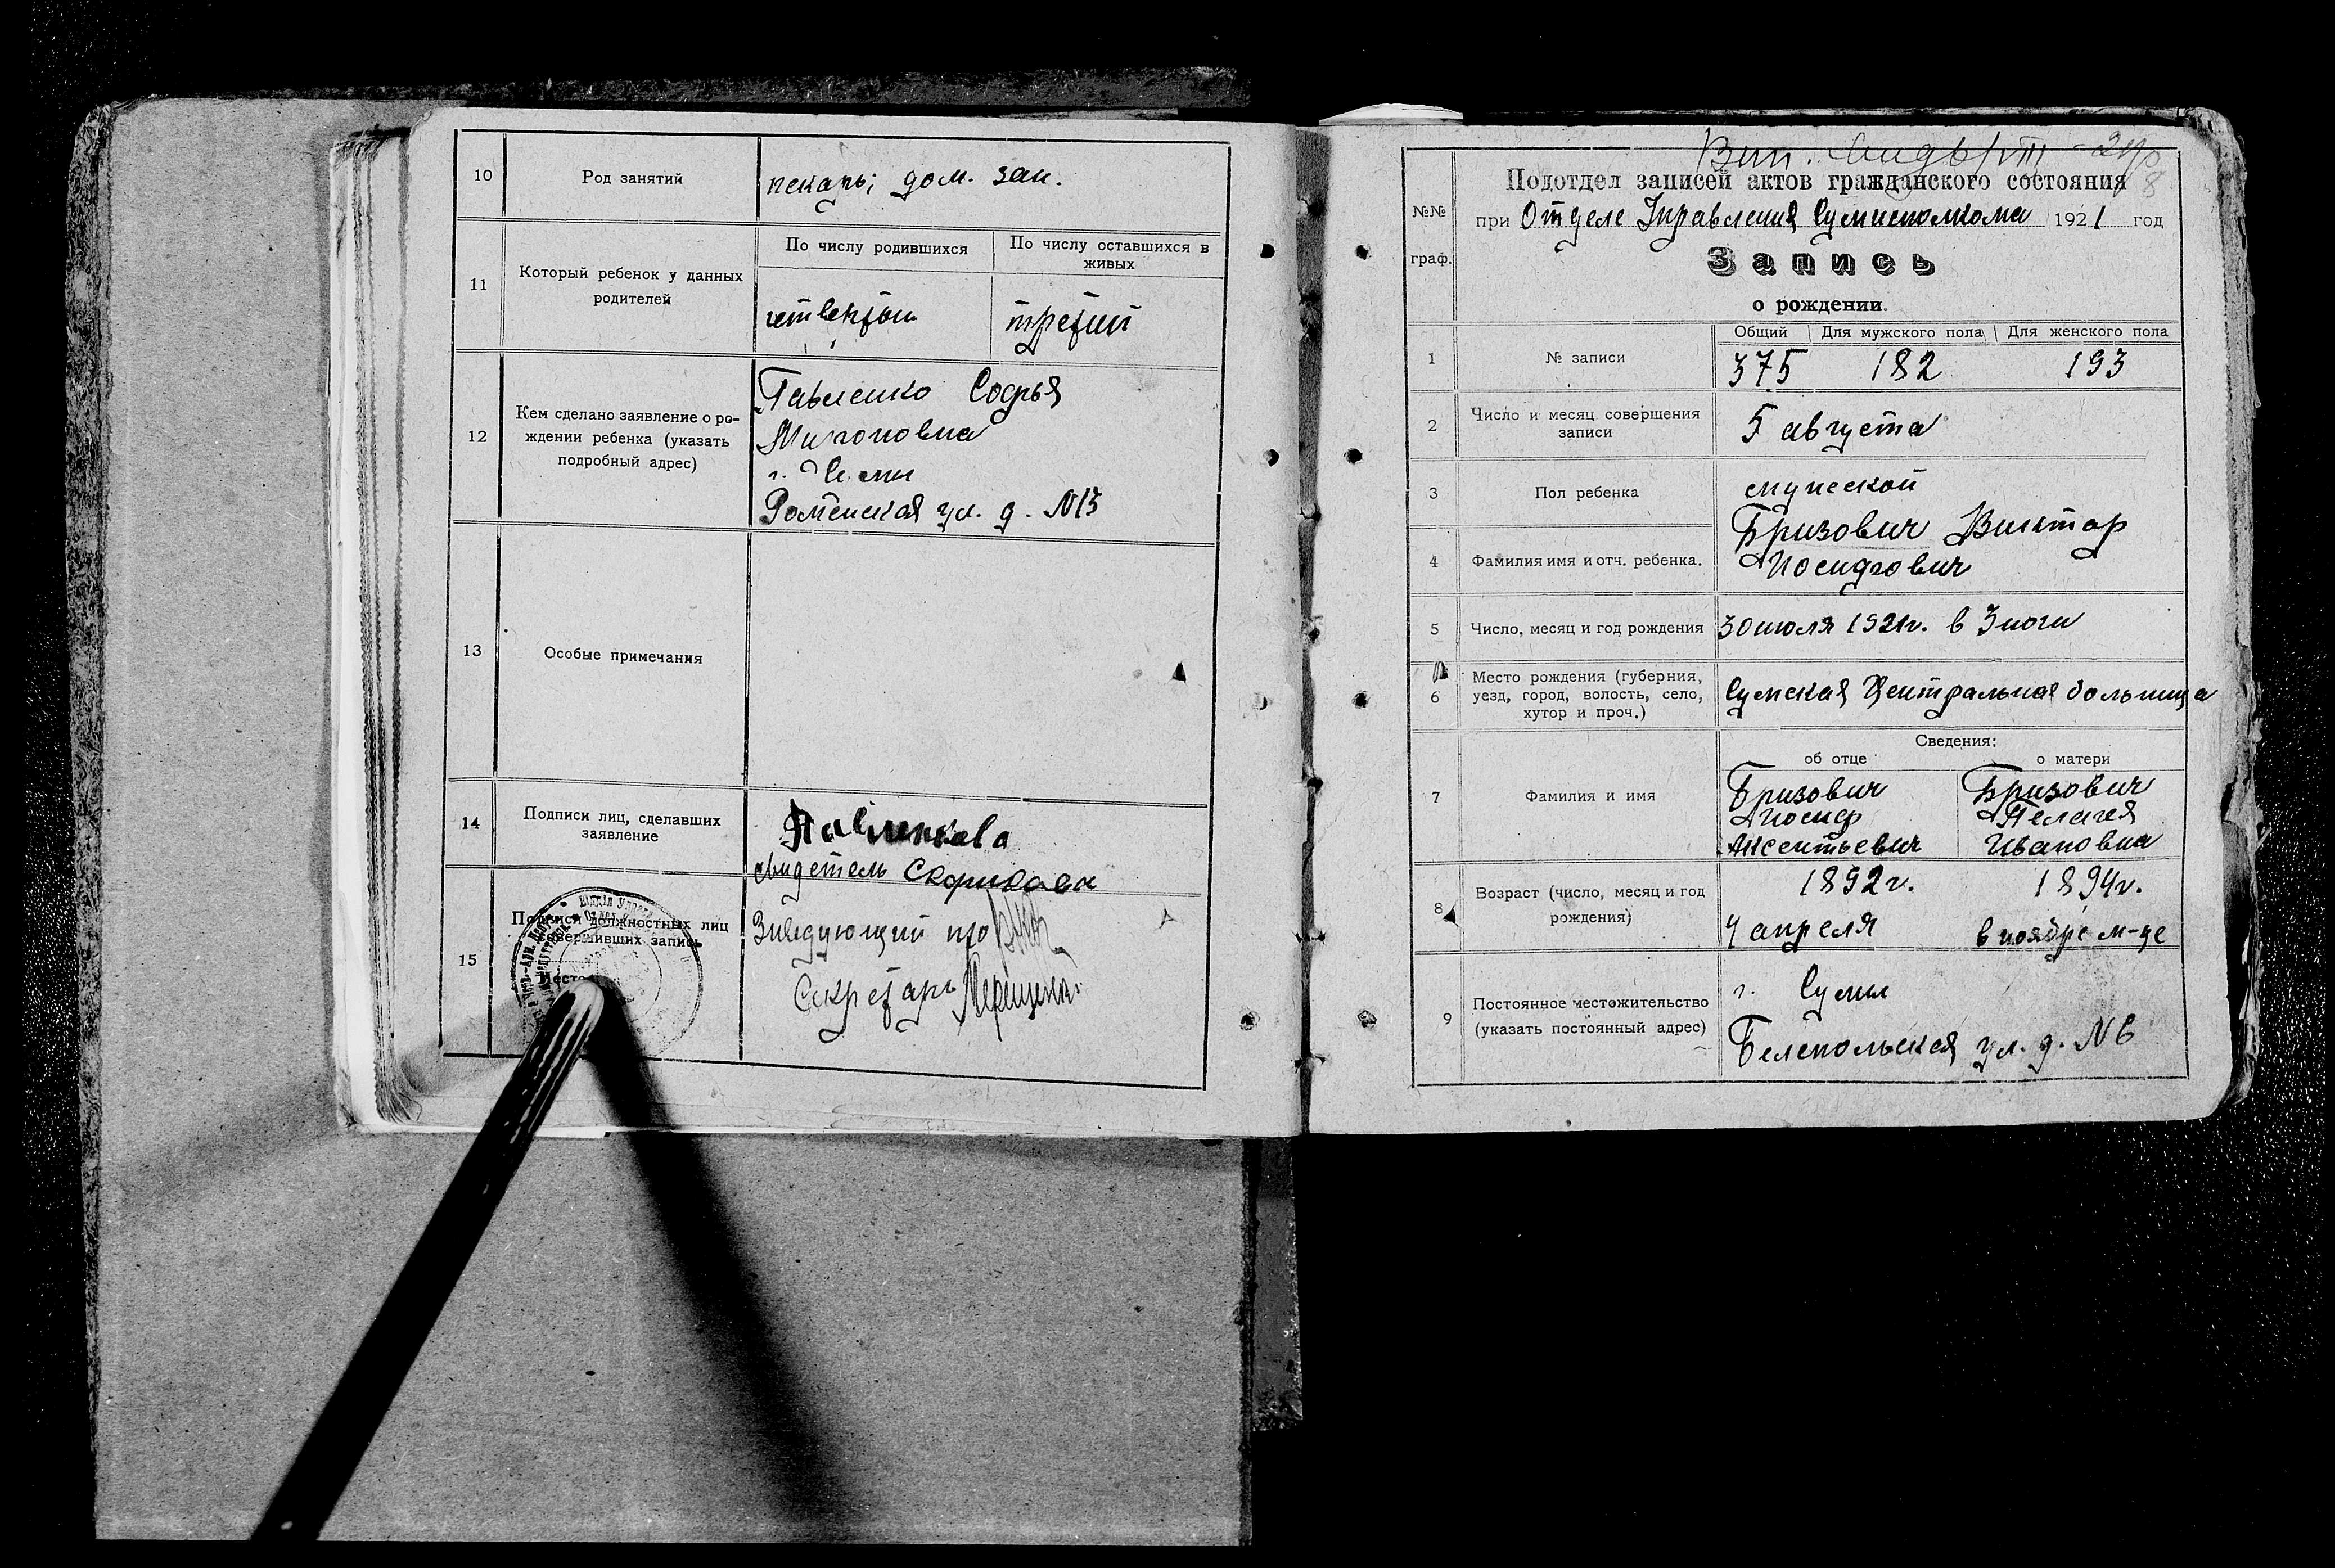 10
Род занятий
пекарь; дом. зан.
11
Который ребенок у данных
родителей
По числу родившихся
По числу оставшихся в
живых
третий
12
Кем сделано заявление о ро-
ждении ребенка (указать
подробный адрес)
Павленко Софья
г. Сумы
Роменская ул. д. №13
13
Особые примечания
14
Подписи лиц, сделавших
заявление
свидетель
15
Подписи должностных лиц
совершивших запись
Заведующий п/о
Секретарь
Подотдел записей актов гражданского состояния
№№
граф.
при Отделе Управления Сумисполкома 1921 год
Запись
о рождении.
Общий
Для мужского пола
Для женского пола
1
№ записи
375
182
193
2
Число и месяц совершения
записи
5 августа
3
Пол ребенка
мужской
4
Фамилия имя и отч. ребенка.
Бризович Виктор
Иосифович
5
Число, месяц и год рождения
30 июля 1921г. в 3 ночи
6
Место рождения (губерния,
уезд, город, волость, село,
хутор и проч.)
Сумская Центральная больница
Сведения:
об отце
о матери
7
Фамилия и имя
Бризович
Иосиф
Аксентьевич
Бризович
Пелагея
Ивановна
8
Возраст (число, месяц и год
рождения)
1892г.
4 апреля
1894г.
в ноябре м-це
9
Постоянное местожительство
(указать постоянный адрес)
г. Сумы
Белопольская ул. д. №6